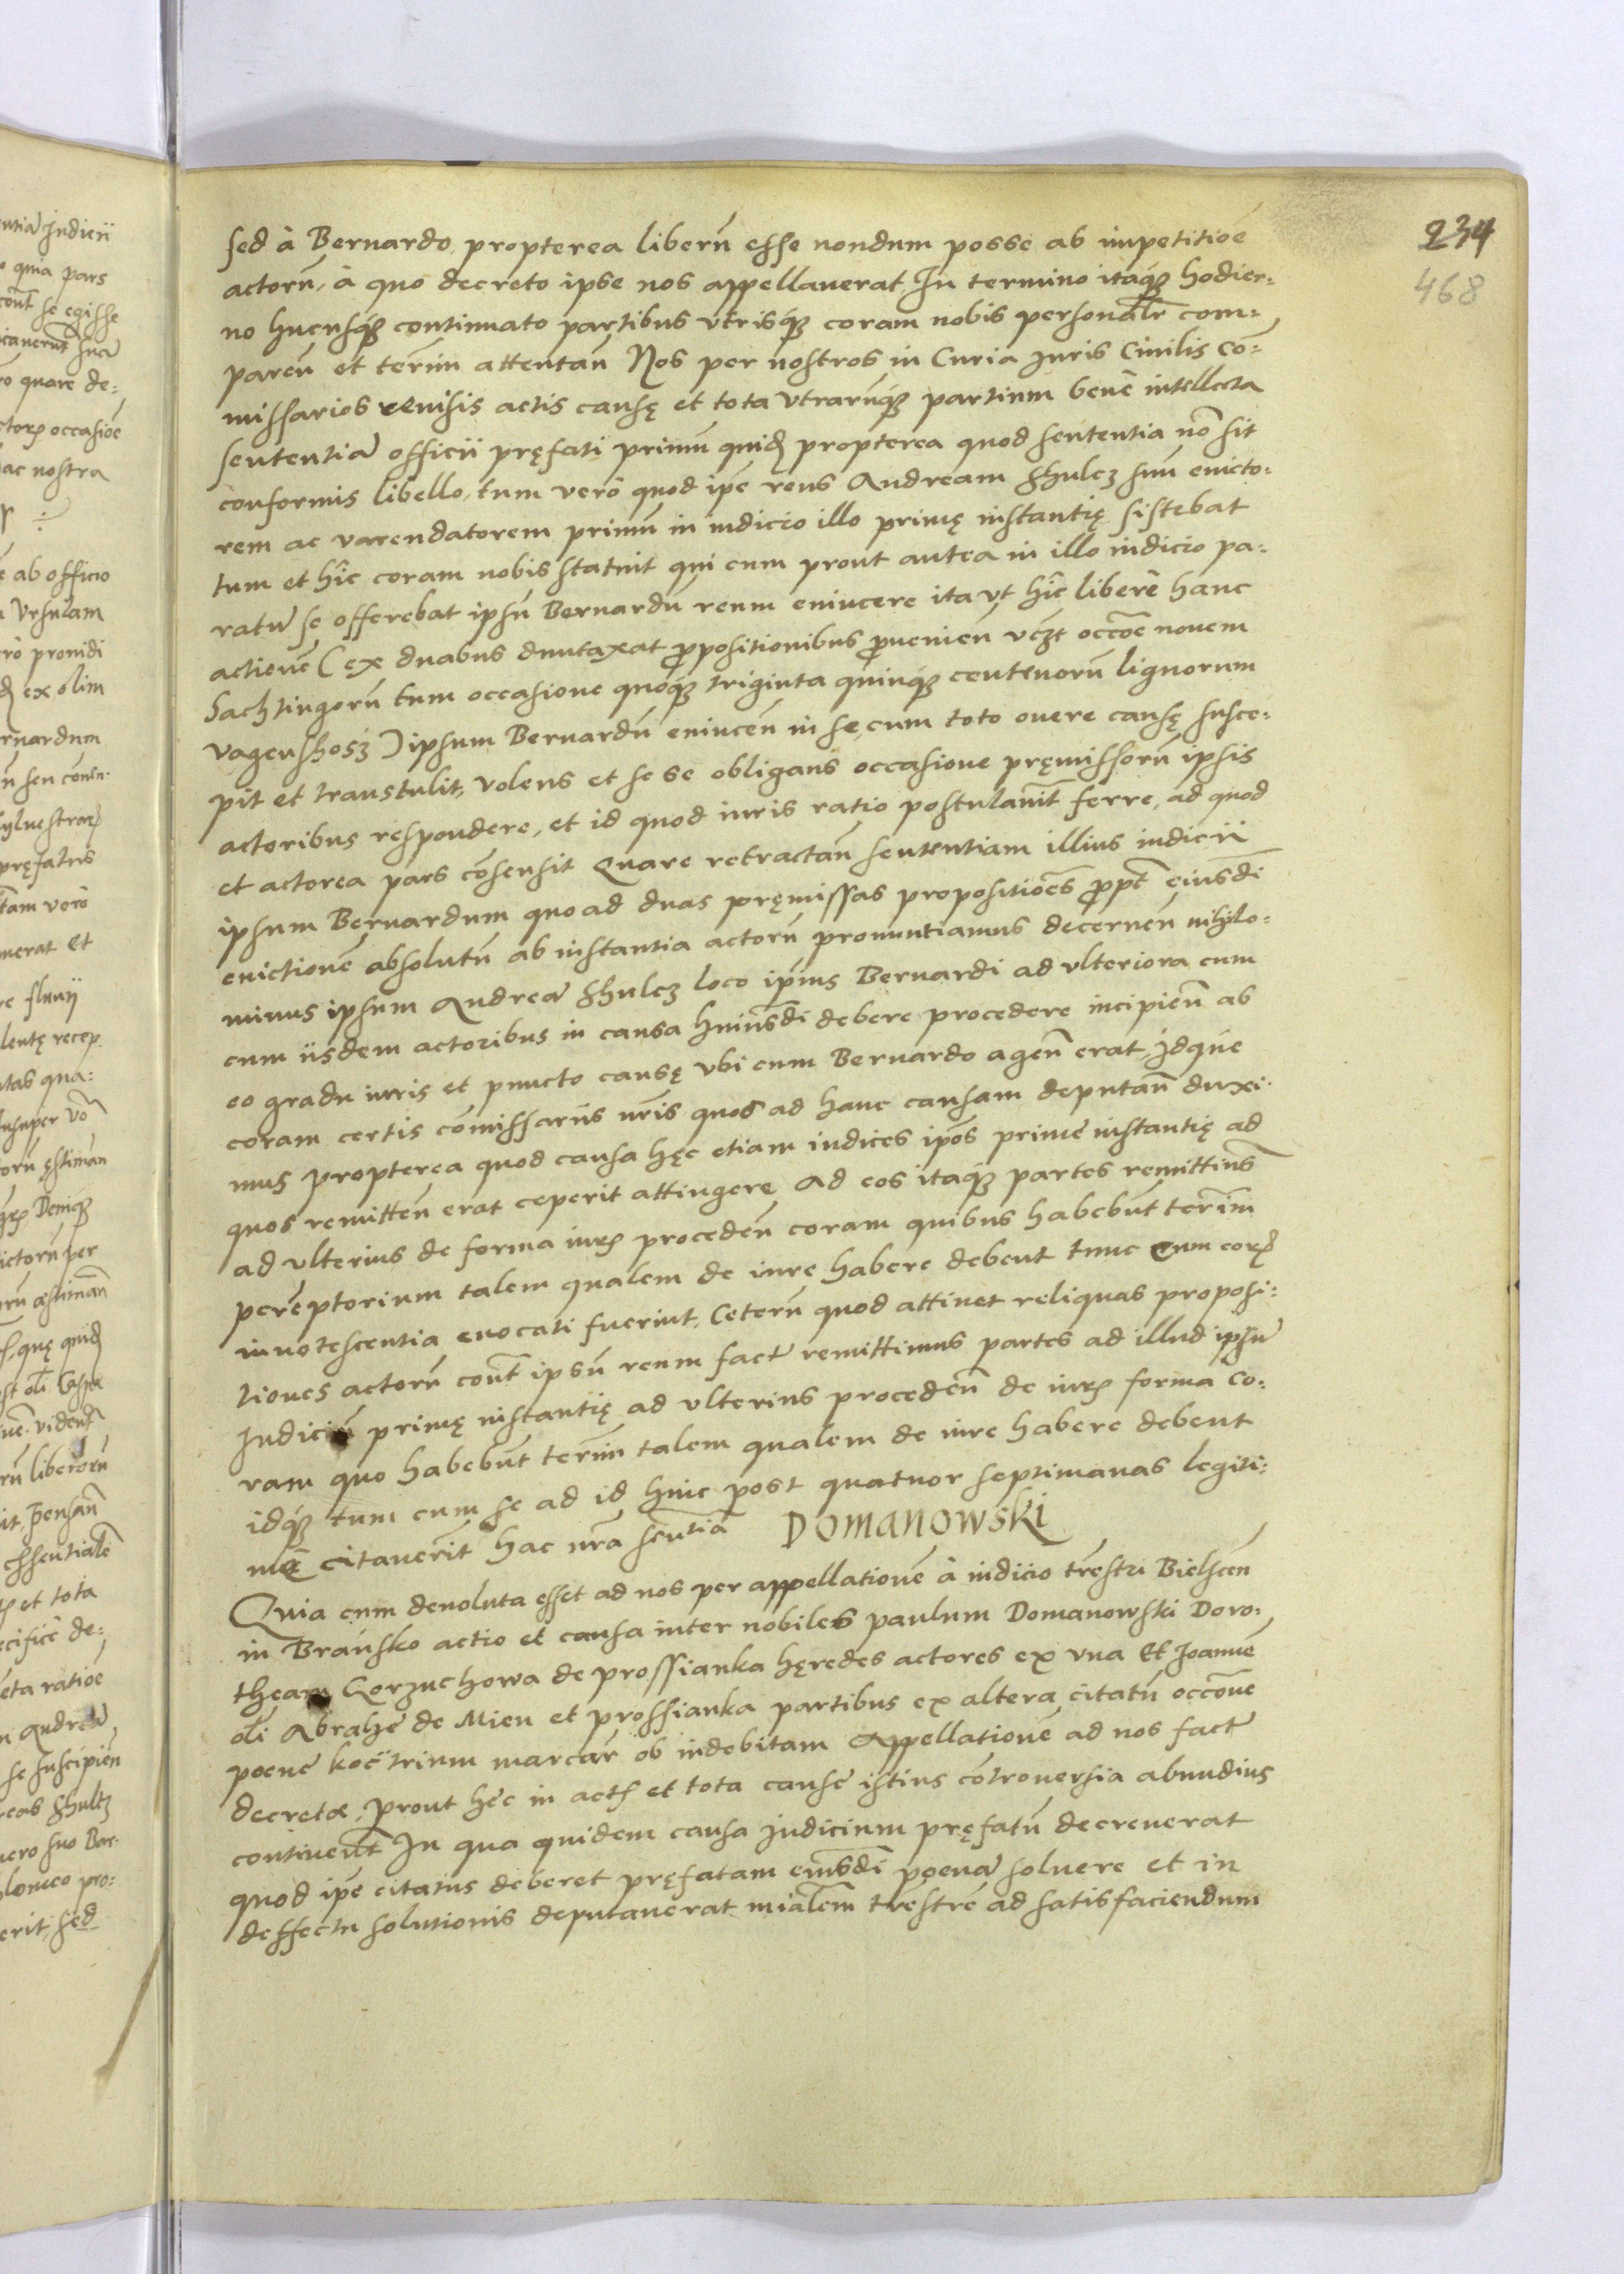 234
468
sed à Bernardo propterea liberū esse nondum posse ab impetitioē
actorū, à quo decreto ipse nos appellauerat. In termino itaq́ue hodier:
no hucusq́ue continuato partibus vtrisq́ue coram nobis personalr̄ com:
parēn et termin attentan̄ Nos per nostros in Curia iuris Ciuilis cō:
missarios reuisis actis causę et tota vtrarūq́ue partium bene intellecta
sententiā officii pręfati primū quid propterea quod sententia nō sit
conformis libello, tum verò quod ip̄e reus Andream Shulcz suū euicto:
rem ac varendatorem primū in iudicio illo primę instantię sistebat
tum et hîc coram nobis statuit qui eum prout antea in illo iudicio pa:
ratū se offerebat ipsū Bernardū reum euincere ita vt hîc liberè hanc
actionē (ex duabus duntaxat ꝓpositionibus ꝓuenien̄ vcz̄t occōe nouem
Sachtingorū tum occasione quoq́ue triginta quinq́ue centenorū lignorum
vagenshosz) ipsum Bernardū euincen̄ in se cum toto onere causę susce:
pit et transtulit, volens et se se obligans occasione pręmissorū ipsis
actoribus respondere, et id quod iuris ratio postulauit̄ ferre, ad quod
et actorea pars cōsensit Quare retractan̄ sententiam illius iudicii
ipsum Bernardum quo ad duas pręmissas propositioēs ꝓpt̄ eiusdī
euictionē absolutū ab instantia actorū pronuntiamus decernen̄ nihilo:
minus ipsum Andreā Shulcz loco ip̄ius Bernardi ad vlteriora cum
cum iisdem actoribus in causa huiūsdi debere procedere incipien̄ ab
eo gradu iuris et puncto causę vbi cum Bernardo agen̄ erat, Idque
coram certis cōmissariis nr̄is quos ad hanc causam deputan̄ duxi:
mus propterea quod causa hęc etiam iudices ip̄os prime instantię ad
quos remitten̄ erat ceperit attingere Ad eos itaq́ue partes remittim̄s
ad vlterius de forma iurꝭ proceden̄ coram quibus habebūt terīm
perēptorium talem qualem de iure habere debent tunc cum eorꝭ
innotescentia euocati fuerint, Ceterū quod attinet reliquas proposi:
tiones actorū cont̄ ipsū reum fact̄ remittimus partes ad illud ipsū
Iudiciū primę instantię ad vlterius proceden̄ de iurꝭ forma co:
ram quo habebūt terīm talem qualem de iure habere debent
idq́ue tum cum se ad id hinc post quatuor septimanas legiti:
mę citauerīt hac nr̄a sen̄tia DOMANOWSKI
Quia cum deuoluta esset ad nos per appellationē à iudicio trēstri Bielscen̄
in Brańsko actio et causa inter nobiles paulum Domanowski Doro:
theam Gorzuchowa de prossianka hęredes actores ex vna Et Joannē
oli Abrahe de Mien et prossianka partibus ex altera citatū occōne
poene koc̄ trium marcar̄ ob indebitam Appellationē ad nos fact̄
decretæ, prout hęc in actꝭ et tota cause istius cōtrouersia abundius
contineūt In qua quidem causa Iudicium pręfatū decreuerat
quod ip̄e citatus deberet pręfatam eiusdī poenā soluere et in
deffectu solutionis deputauerat miālem trēstrē ad satisfaciendum